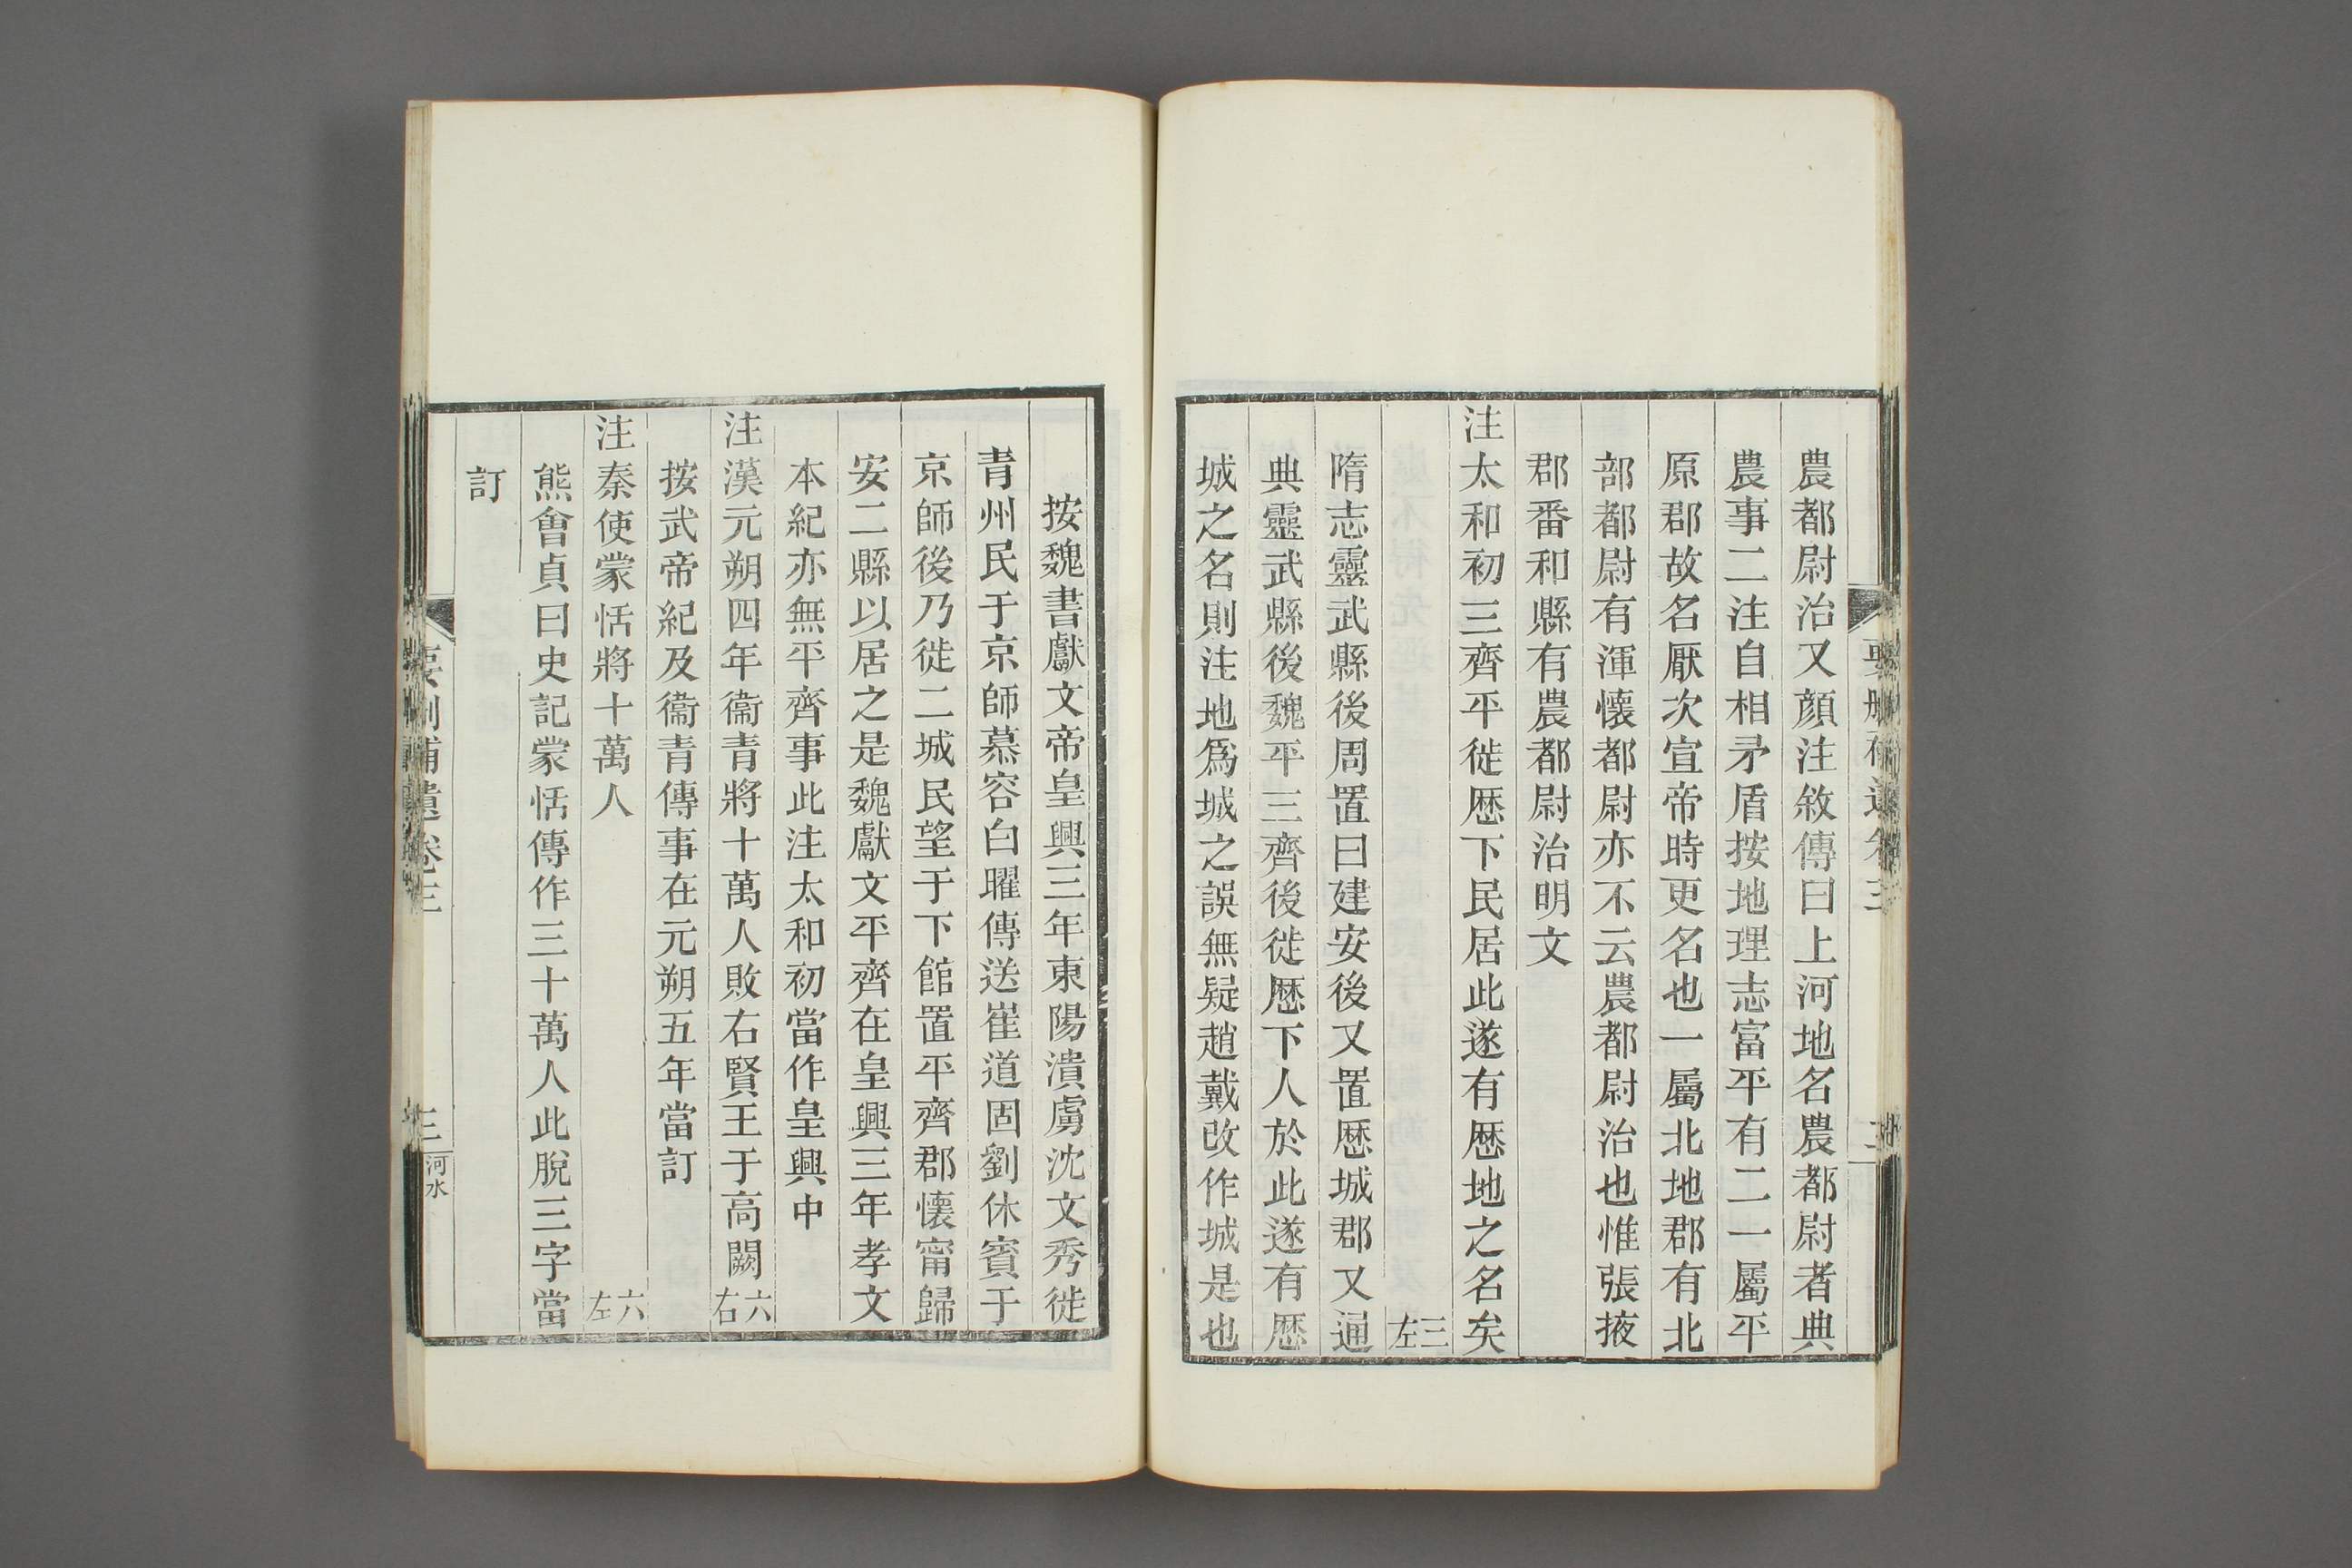 農都尉治又顏注敘傳曰上河地名農都尉者典
農事二注自相矛盾按地理志富平有二一屬平
原郡故名厭次宣帝時更名也一屬北地郡有北
部都尉有渾懷都尉亦不云農都尉治也惟張掖
郡番和縣有農都尉治明文
注太和初三齊平徙歷下民居此遂有歷地之名矣
三左
隋志靈武縣後周置曰建安後又置歷城郡又通
典靈武縣後魏平三齊後徙歷下人於此遂有歷
城之名則注地爲城之誤無疑趙戴改作城是也
按魏書獻文帝皇興三年東陽潰虜沈文秀徙
青州民于京師慕容白曜傳送崔道固劉休賓于
京師後乃徙二城民望于下館置平齊郡懷甯歸
安二縣以居之是魏獻文平齊在皇興三年孝文
本紀亦無平齊事此注太和初當作皇興中
注漢元朔四年衞青將十萬人敗右賢王于高闕六右
按武帝紀及衞青傳事在元朔五年當訂
注秦使蒙恬將十萬人 六左
熊會貞曰史記蒙恬傳作三十萬人此脫三字當
訂
要刪補遺卷三
三
河水